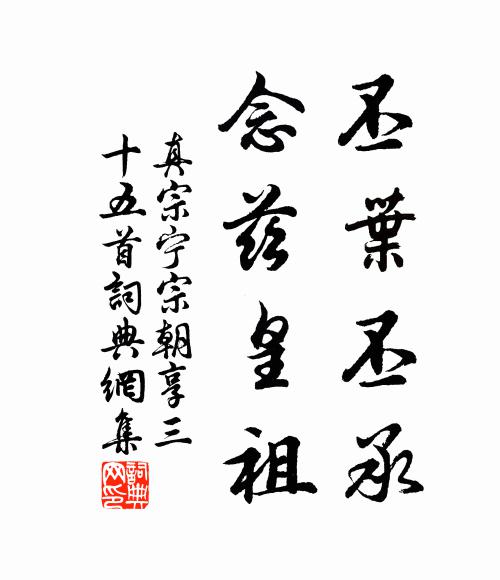 丕葉丕承
念茲皇祖
真宗宁宗朝享三
十五首詞典網集
詞典
网印